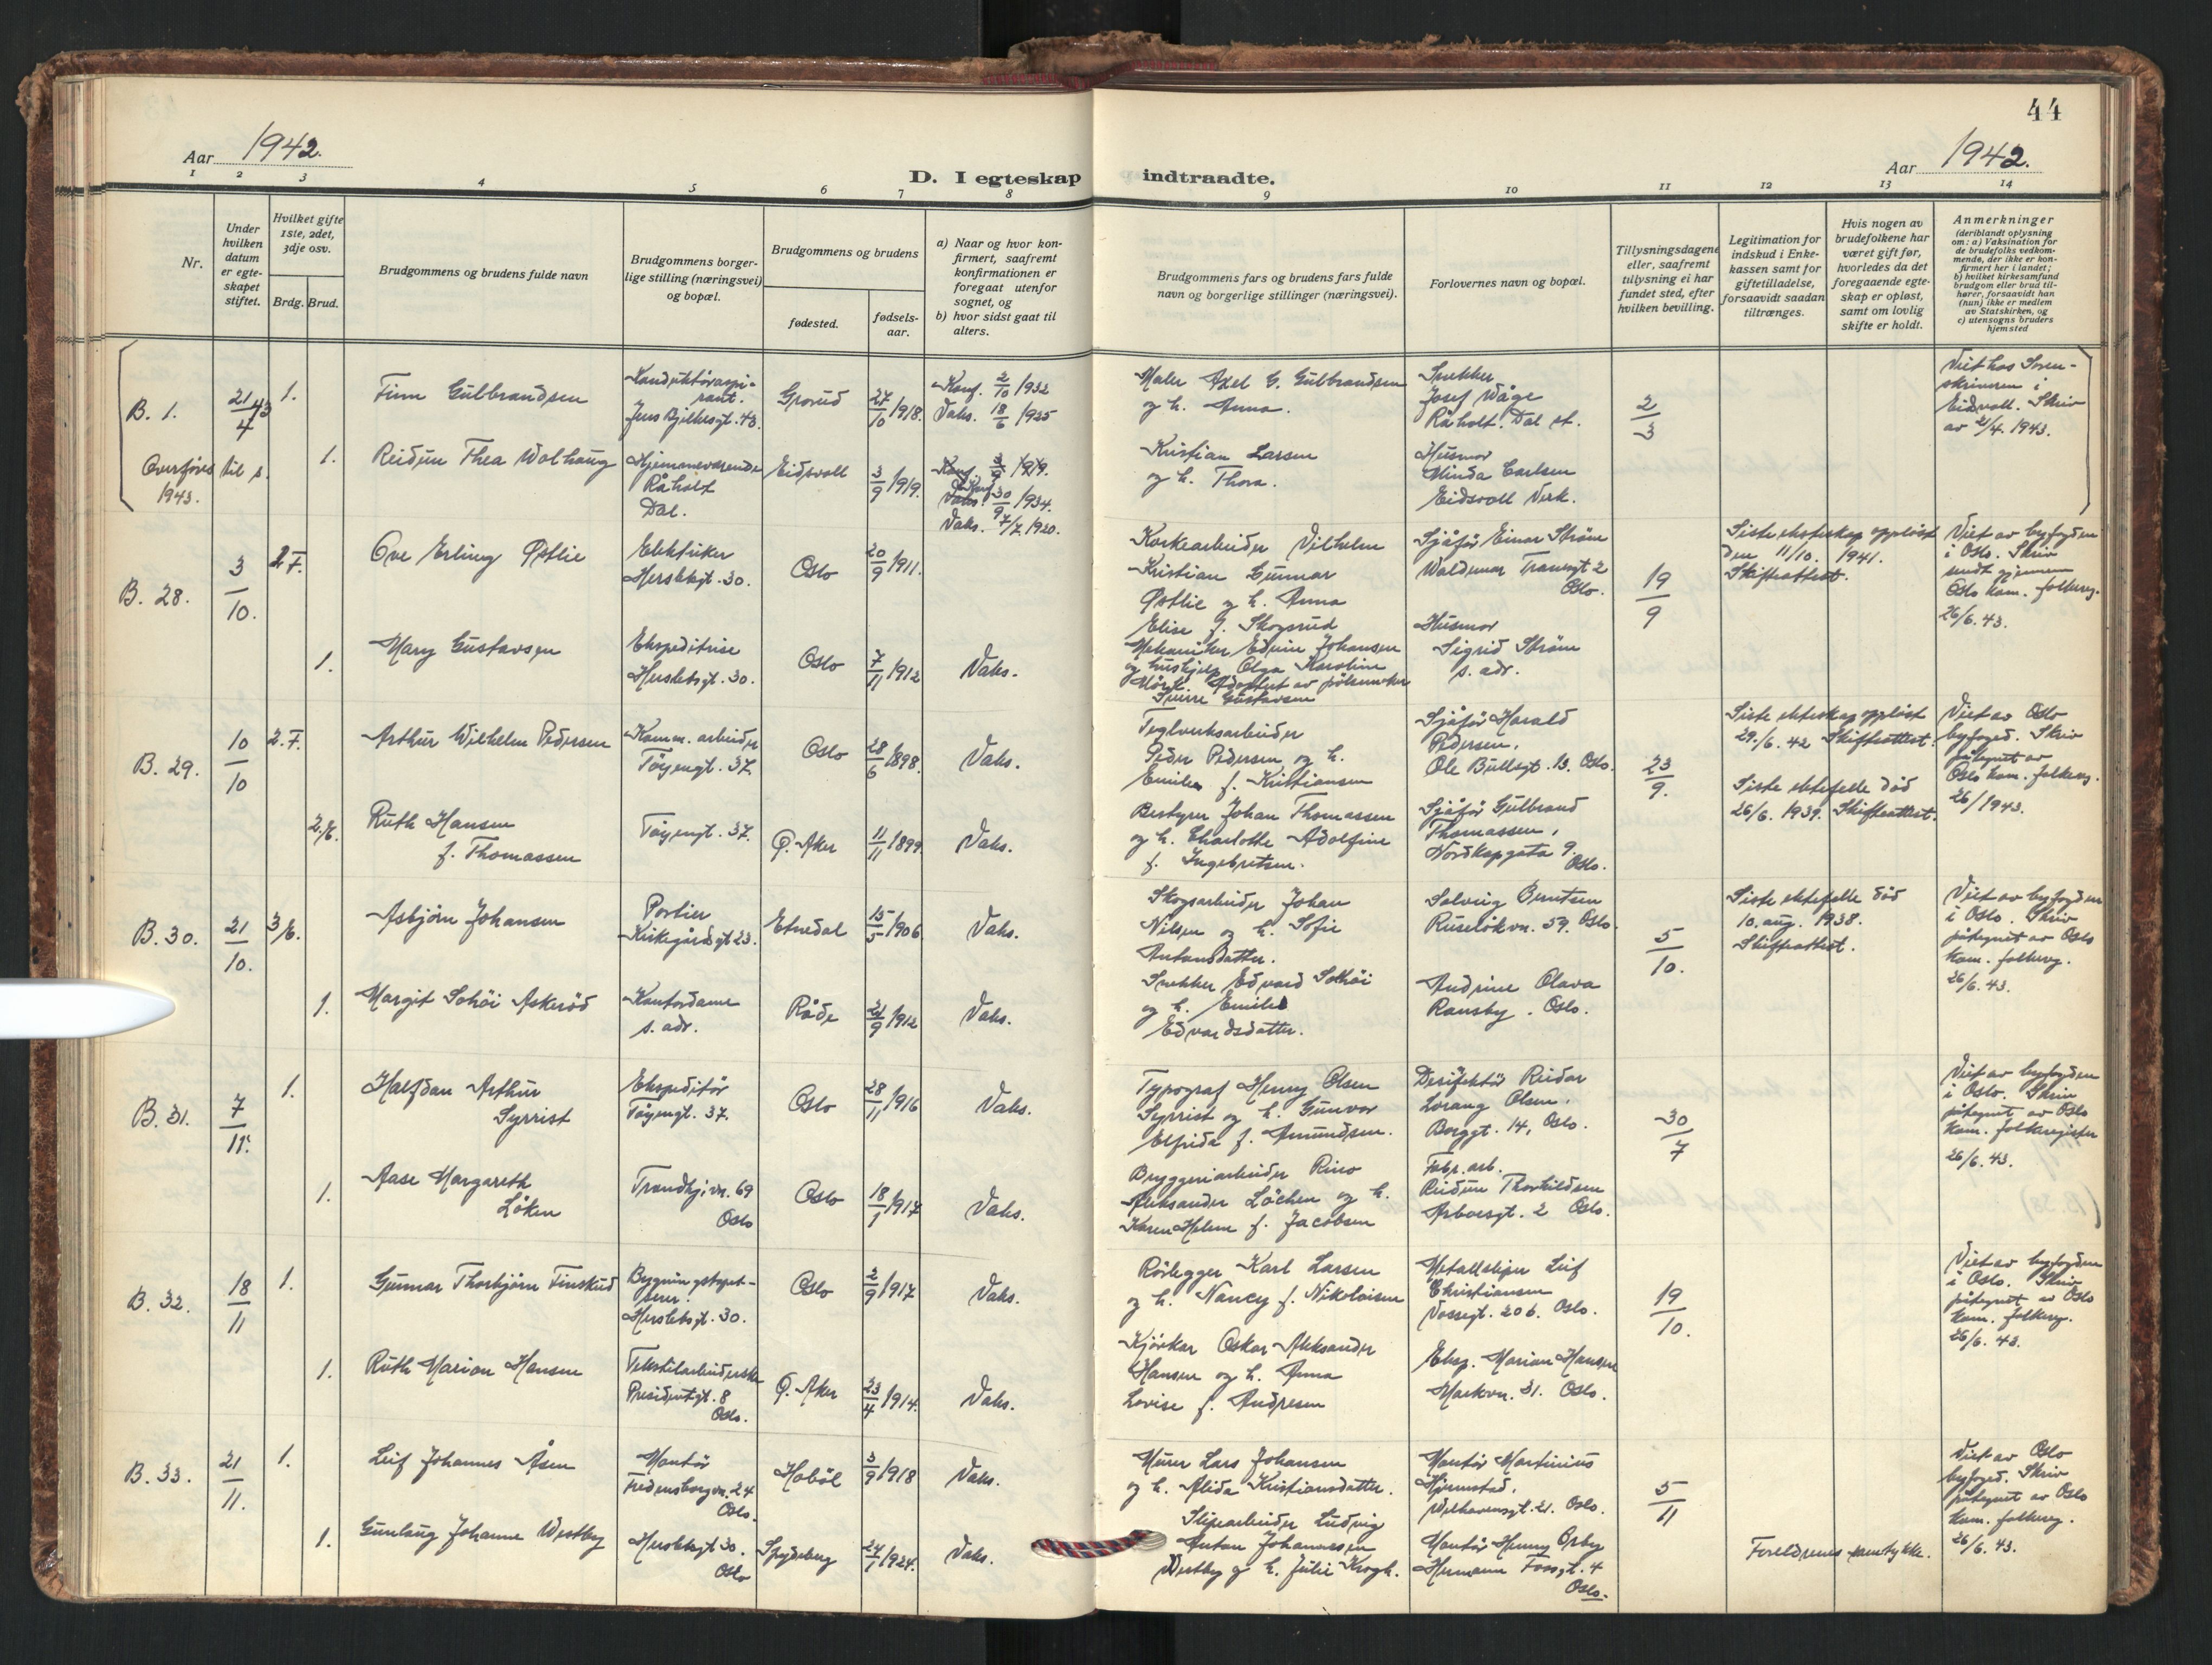 44
Aar 1942.
D. I egteskap indtraadte.
Aar 1942.
1 2 3 4 5 6 7 8 9 10 11 12 13 14
Nr.
Under
hvilken
datum
er egte-
skapet
stiftet.
Hvilket gifte
1ste, 2det,
3dje osv.
Brdg. Brud.
Brudgommens og brudens fulde navn
Brudgommens borger-
lige stilling (næringsvei)
og bopæl.
Brudgommens og brudens
fødested.
fødsels-
aar.
a) Naar og hvor kon-
firmert, saafremt
konfirmationen er
foregaat utenfor
sognet, og
b) hvor sidst gaat til
alters.
Brudgommens fars og brudens fars fulde
navn og borgerlige stillinger (næringsvei).
Forlovernes navn og bopæl.
Tillysningsdagene
eller, saafremt
tillysning ei har
fundet sted, efter
hvilken bevilling.
Legitimation for
indskud i Enke-
kassen samt for
giftetilladelse,
forsaavidt saadan
tiltrænges.
Hvis nogen av
brudefolkene har
været gift før,
hvorledes da det
foregaaende egte-
skap er opløst,
samt om lovlig
skifte er holdt.
Anmerkninger
(deriblandt oplysning
om: a) Vaksination for
de brudefolks vedkom-
mende, der ikke er kon-
firmert her i landet;
b) hvilket kirkesamfund
brudgom eller brud til-
hører, forsaavidt han
(hun) ikke er medlem
av Statskirken, og
c) utensogns bruders
hjemsted
B. 1.
21/4 43
1.
Finn Gulbrandsen
Konduktøraspi-
rant.
Jens Bjelkesgt. 43.
Grorud
27/10 1918.
Konf. 2/10 1932
Vaks. 18/6 1925
Maler Axel G. Gulbrandsen
og h. Anna.
Snekker
Josef Wåge
Råholt. Dal st.
2/3
Viet hos Soren-
skriveren i
Eidsvoll. Skriv
av 2/4. 1943.
Overføres til p.
1943.
1.
Reidun Thea Wolhaug
Hjemmeværende
Råholt
Dal.
Eidsvoll
3/9 1919.
Konf. 3/9 1919.
30/9 1934.
Vaks. 7/7 1920.
Kristian Larsen
og h. Thora.
Husmor
Minda Carlsen
Eidsvoll Verk.
B. 28.
3/10.
2 F.
Ove Erling Østlie
Elektriker
Herslebsgt. 30.
Oslo
20/9 1911.
Korkearbeider Vilhelm
Kristian Gunnar
Østlie og h. Anna
Elise f. Skogsrud
Sjåfør Einar Strøm
Waldemar Thranesgt 2
Oslo.
19/9
Siste ekteskap oppløst
den 11/10. 1941.
Skifteattest.
Viet av byfogden
i Oslo. Skriv
sendt gjennem
Oslo kom. folkereg.
26/6. 43.
1.
Mary Gustavsen
Ekspeditrise
Herslebsgt. 30.
Oslo
7/11 1912
Vaks.
Mekaniker Edvin Johansen
og hushjelp Olga Karoline
Mørk. Adoptert av pølsemaker
Gustavsen
Husmor
Sigrid Strøm
s. adr.
B. 29.
10/10
2. F.
Arthur Wilhelm Pedersen
Komm. arbeider
Tøyengt. 37.
Oslo
28/6 1898.
Vaks.
Teglverksarbeider
Peder Pedersen og h.
Emilie f. Kristiansen
Sjåfør Harald
Pedersen.
Ole Bullsgt. 13. Oslo.
23/9.
Siste ekteskap oppløst
29./6. 42 Skifteattest.
Viet av Oslo
byfoged. Skriv
påtegnet av
Oslo kom. folkereg.
26/ 1943.
2./E.
Ruth Hansen
f. Thomassen
Tøyengt. 37.
Ø. Aker
11/11 1899
Vaks.
Bestyrer Johan Thomassen
og h. Charlotte Adolfine
f. Ingebretsen.
Sjåfør Gulbrand
Thomassen,
Nordkapgata 9.
Oslo.
Siste ektefelle død
26/6. 1939. Skifteattest.
B. 30.
21/10.
3/E.
Asbjørn Johansen
Portier
Kirkegårdsgt 23.
Etnedal
15/5 1906
Vaks.
Skogsarbeider Johan
Nilsen og h. Sofie
Antonsdatter.
Solveig Berntsen
Ruseløkvn. 59. Oslo.
5/10.
Siste ektefelle død
10. aug. 1938.
Skifteattest.
Viet av byfogden
i Oslo. Skriv
påtegnet av Oslo
kom. folkereg.
26/6. 43.
1.
Margit Solhøi Askerød
Kontordame
s. adr.
Råde
21/9 1912
Vaks.
Snekker Edvard Solhøi
og h. Emilie
Edvardsdatter.
Andrine Olava
Ransby. Oslo.
B. 31.
7/11.
1.
Halfdan Arthur
Syrrist
Ekspeditør
Tøyengt. 37.
Oslo
28/11 1916
Vaks.
Typograf Henry Olsen
Syrrist og h. Gunvor
Elfrida f. Amundsen.
Desifektør Reidar
Lorang Olsen.
Borggt. 14, Oslo.
30/7
Viet av byfogden
i Oslo. Skriv
påtegnet av Oslo
kom. folkeregister
26/6. 43.
1.
Aase Margareth
Løken
Trondhj.vn. 69
Oslo
Oslo
18/1 1917
Vaks.
Bryggeriarbeider Rino
Aleksander Løchen og h.
Karen Helene f. Jacobsen
Fabr. arb.
Reidun Thorkildsen
Arbosgt. 2 Oslo.
B. 32.
18/11
1.
Gunnar Thorbjørn Finskud
Bygningstapet-
serer.
Herslebsgt. 30.
Oslo
2/9 1917
Vaks.
Rørlegger Karl Larsen
og h. Nancy f. Nikolaisen
Metallsliper Leif
Christiansen
Vossegt. 20 b. Oslo.
19/10.
Viet av byfogden
i Oslo. Skriv
påtegnet av Oslo
kom. folkereg.
26/6. 43.
1.
Ruth Marian Hansen
Tekstilarbeiderske
Presidentgt. 8
Oslo.
Ø. Aker
23/4 1914.
Vaks.
Kjørekar Oskar Aleksander
Hansen og h. Anna
Lovise f. Andresen
Eksp. Marian Hansen
Markvn. 31. Oslo.
B. 33.
21/11.
1.
Leif Johannes Åsen
Montør
Fredensborgvn. 24
Oslo.
Hobøl
3/9 1918
Vaks.
Murer Lars Johansen
og h. Alida Kristiansdatter.
Montør Martinius
Hjemstad.
Welhavensgt. 21. Oslo.
5/11
Viet av Oslo
byfoged. Skriv
påtegnet av Oslo
kom. folkereg.
26/6. 43.
1.
Gunlaug Johanne Westby
Herslebsgt 30.
Oslo
Spydeberg
24/1 1924.
Vaks.
Sliparbeider Ludvig
Anton Johannessen
Westby og h. Julie Krogh.
Montør Henry Ørby
Hermann Fossgt. 4
Oslo.
Foreldrenes samtykke.